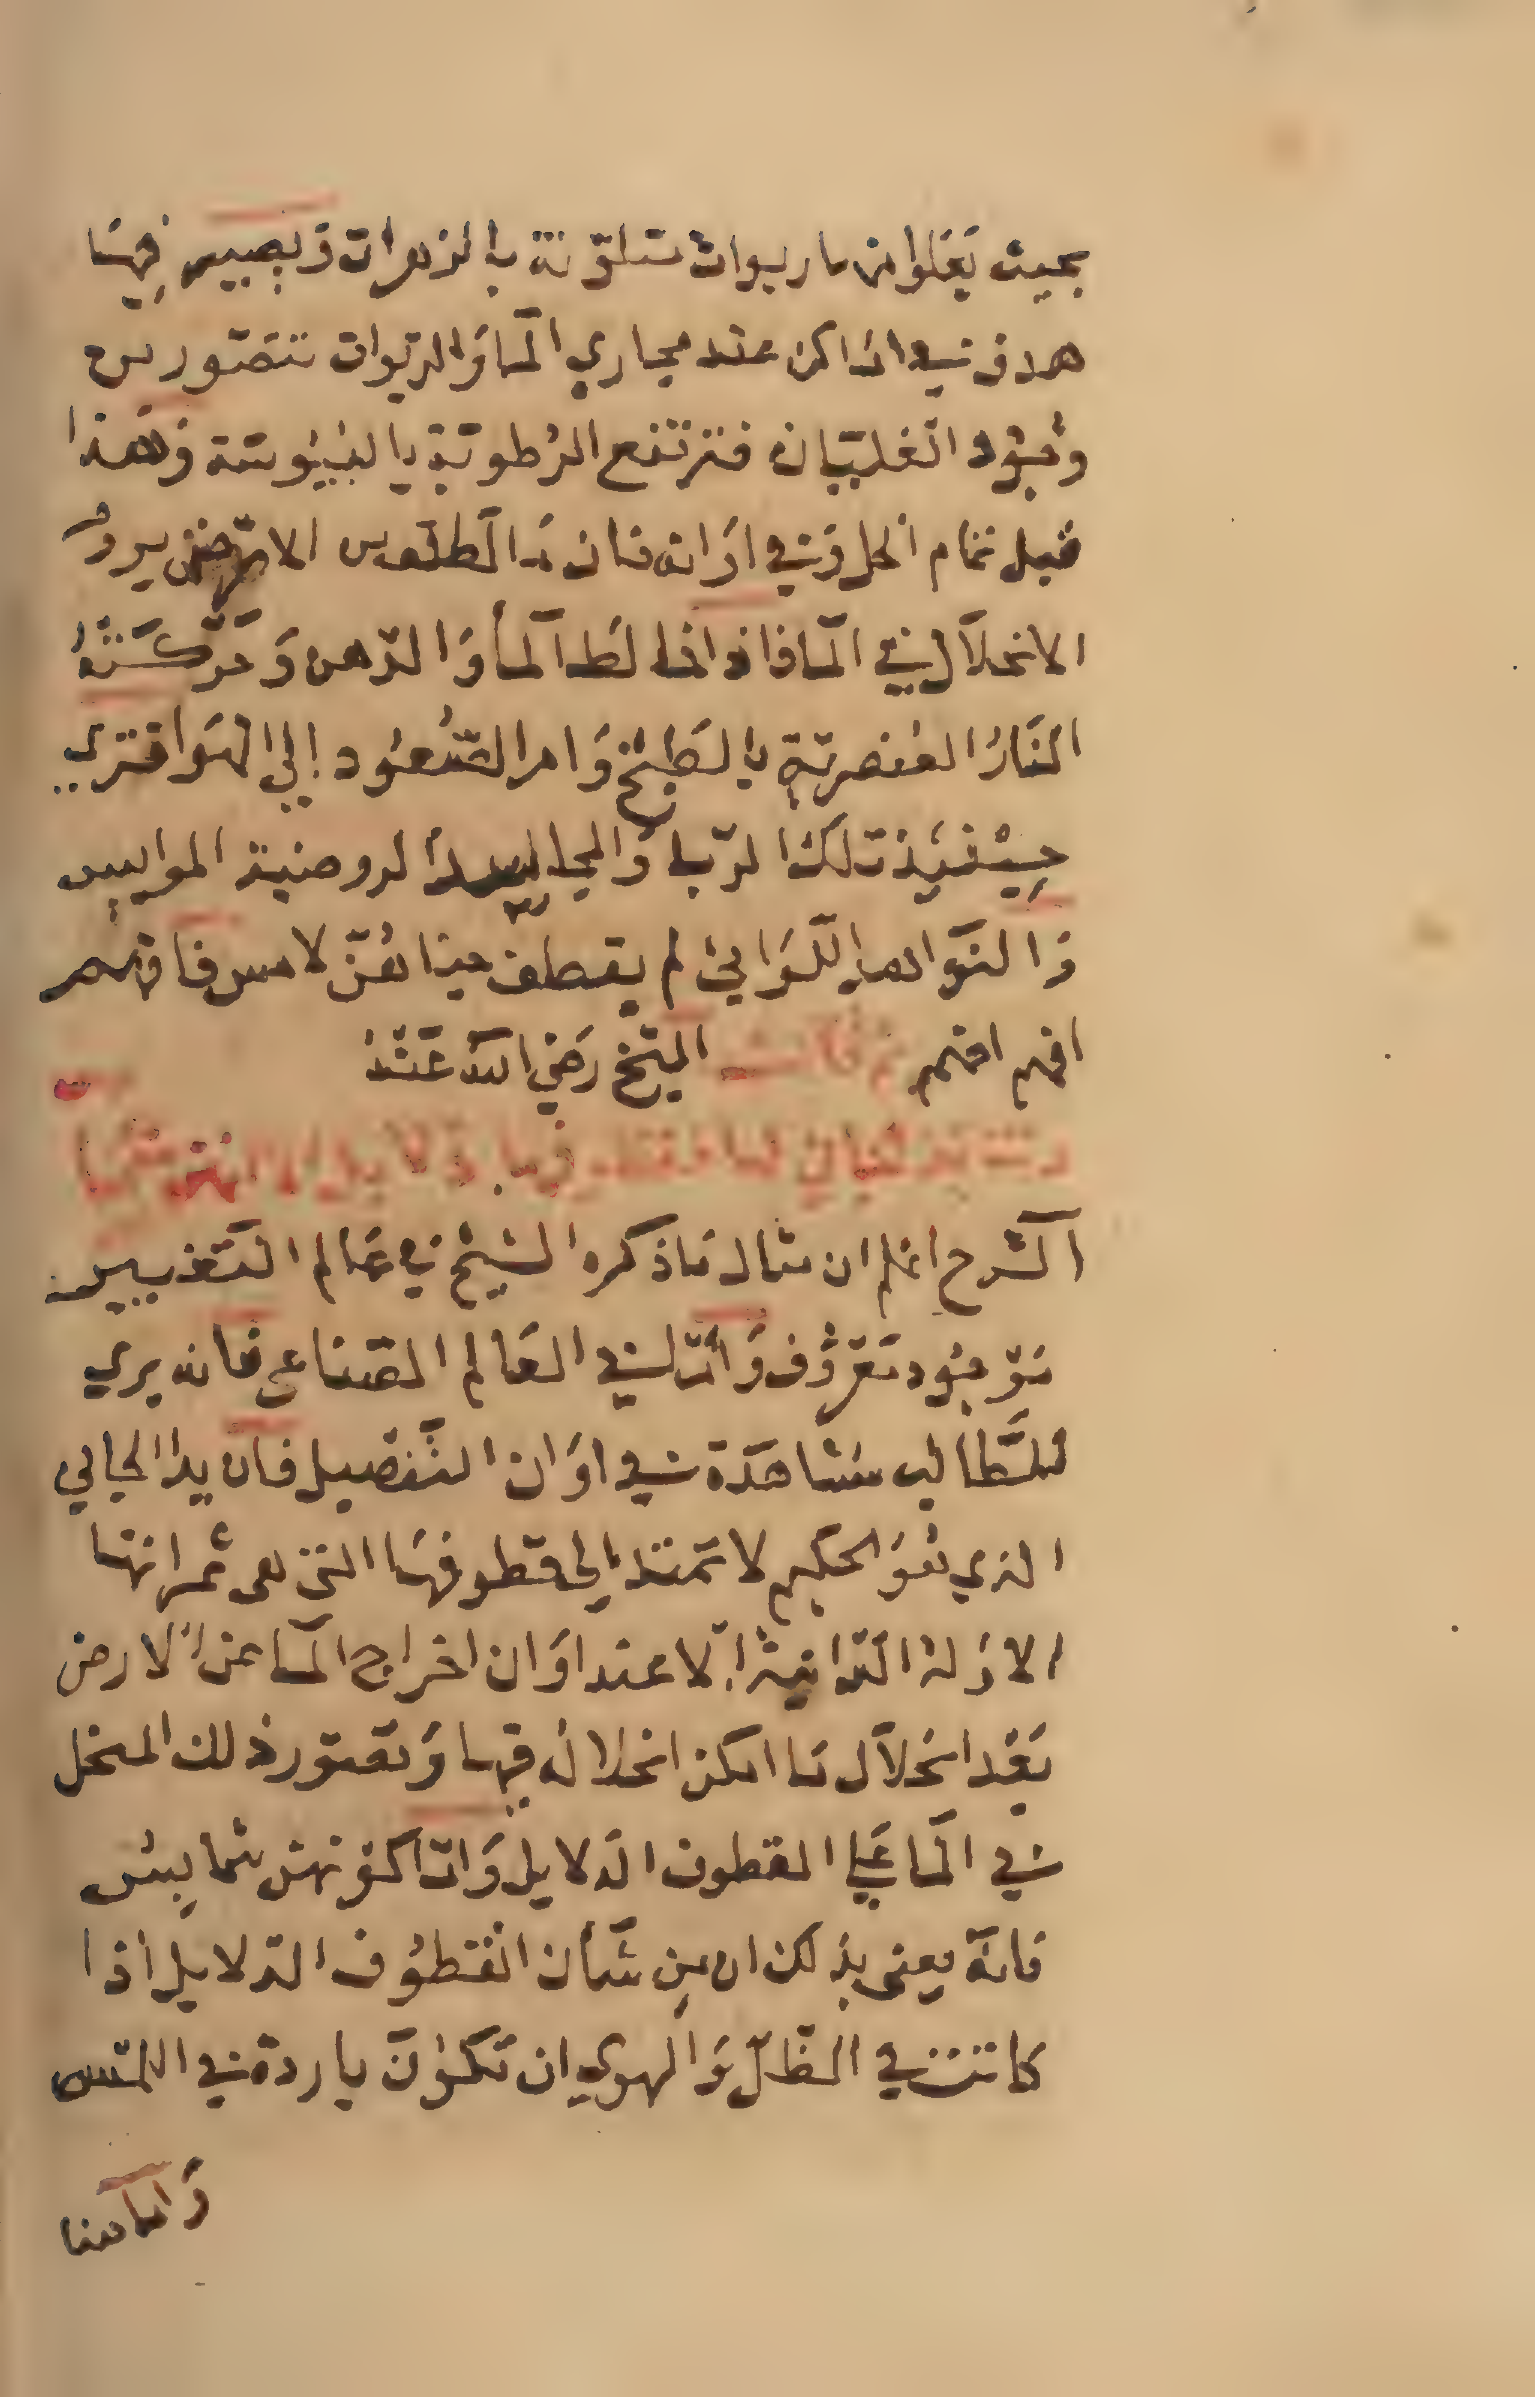 بحيث يعلوا من ما ربوات متلونة بالزهرات ويصير فيها
هدف في اماكن عند مجاري الما والربوات تتصور من
وجود الغليان فترتفع الرطوبة باليبوسة وهذا
قبل تمام الحل وفي اوانه فان
الانحلال في الما فاذا خالط الما والدهن وحركته
النار العنصرية بالطبخ وامر الصعود الي الهوا فتري
حينئذ تلك الربا والمجا الروضية الموايس
والنواهد اللواتي لم يقطف جناهن لامس فافهم
افهم افهم ثم قال الشيخ رضي الله عنه
الشرح اعلم ان مثال ماذكره الشيخ في عالم التغيير
موجود معروف واما في العالم الصناعي فانه يري
للطالب مشاهدة في اوان التفصيل فان يد الجاني
الذي هو الحكيم لا تمتد الي قطوفها التي هي ثمراتها
الاولة الدانية الا عند اوان اخراج الما عن الارض
بعد انحلال ما امكن انحلاله فيها وتصور ذلك المنحل
في الما علي القطوف الدلايل واما كونهن شمايس
فانه يعني بذلك ان من شأن القطوف الدلايل اذا
كانت في الظل والهوي ان تكون باردة في اللمس
واما هنا